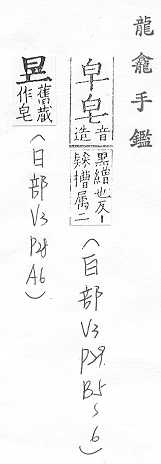 龍龕手鑑
皁皂
音
造
黑繒也
槽属二
(白部 V3 P29. B5 s 6)
舊蔵
作皂
(日部 V3 P28 A6)